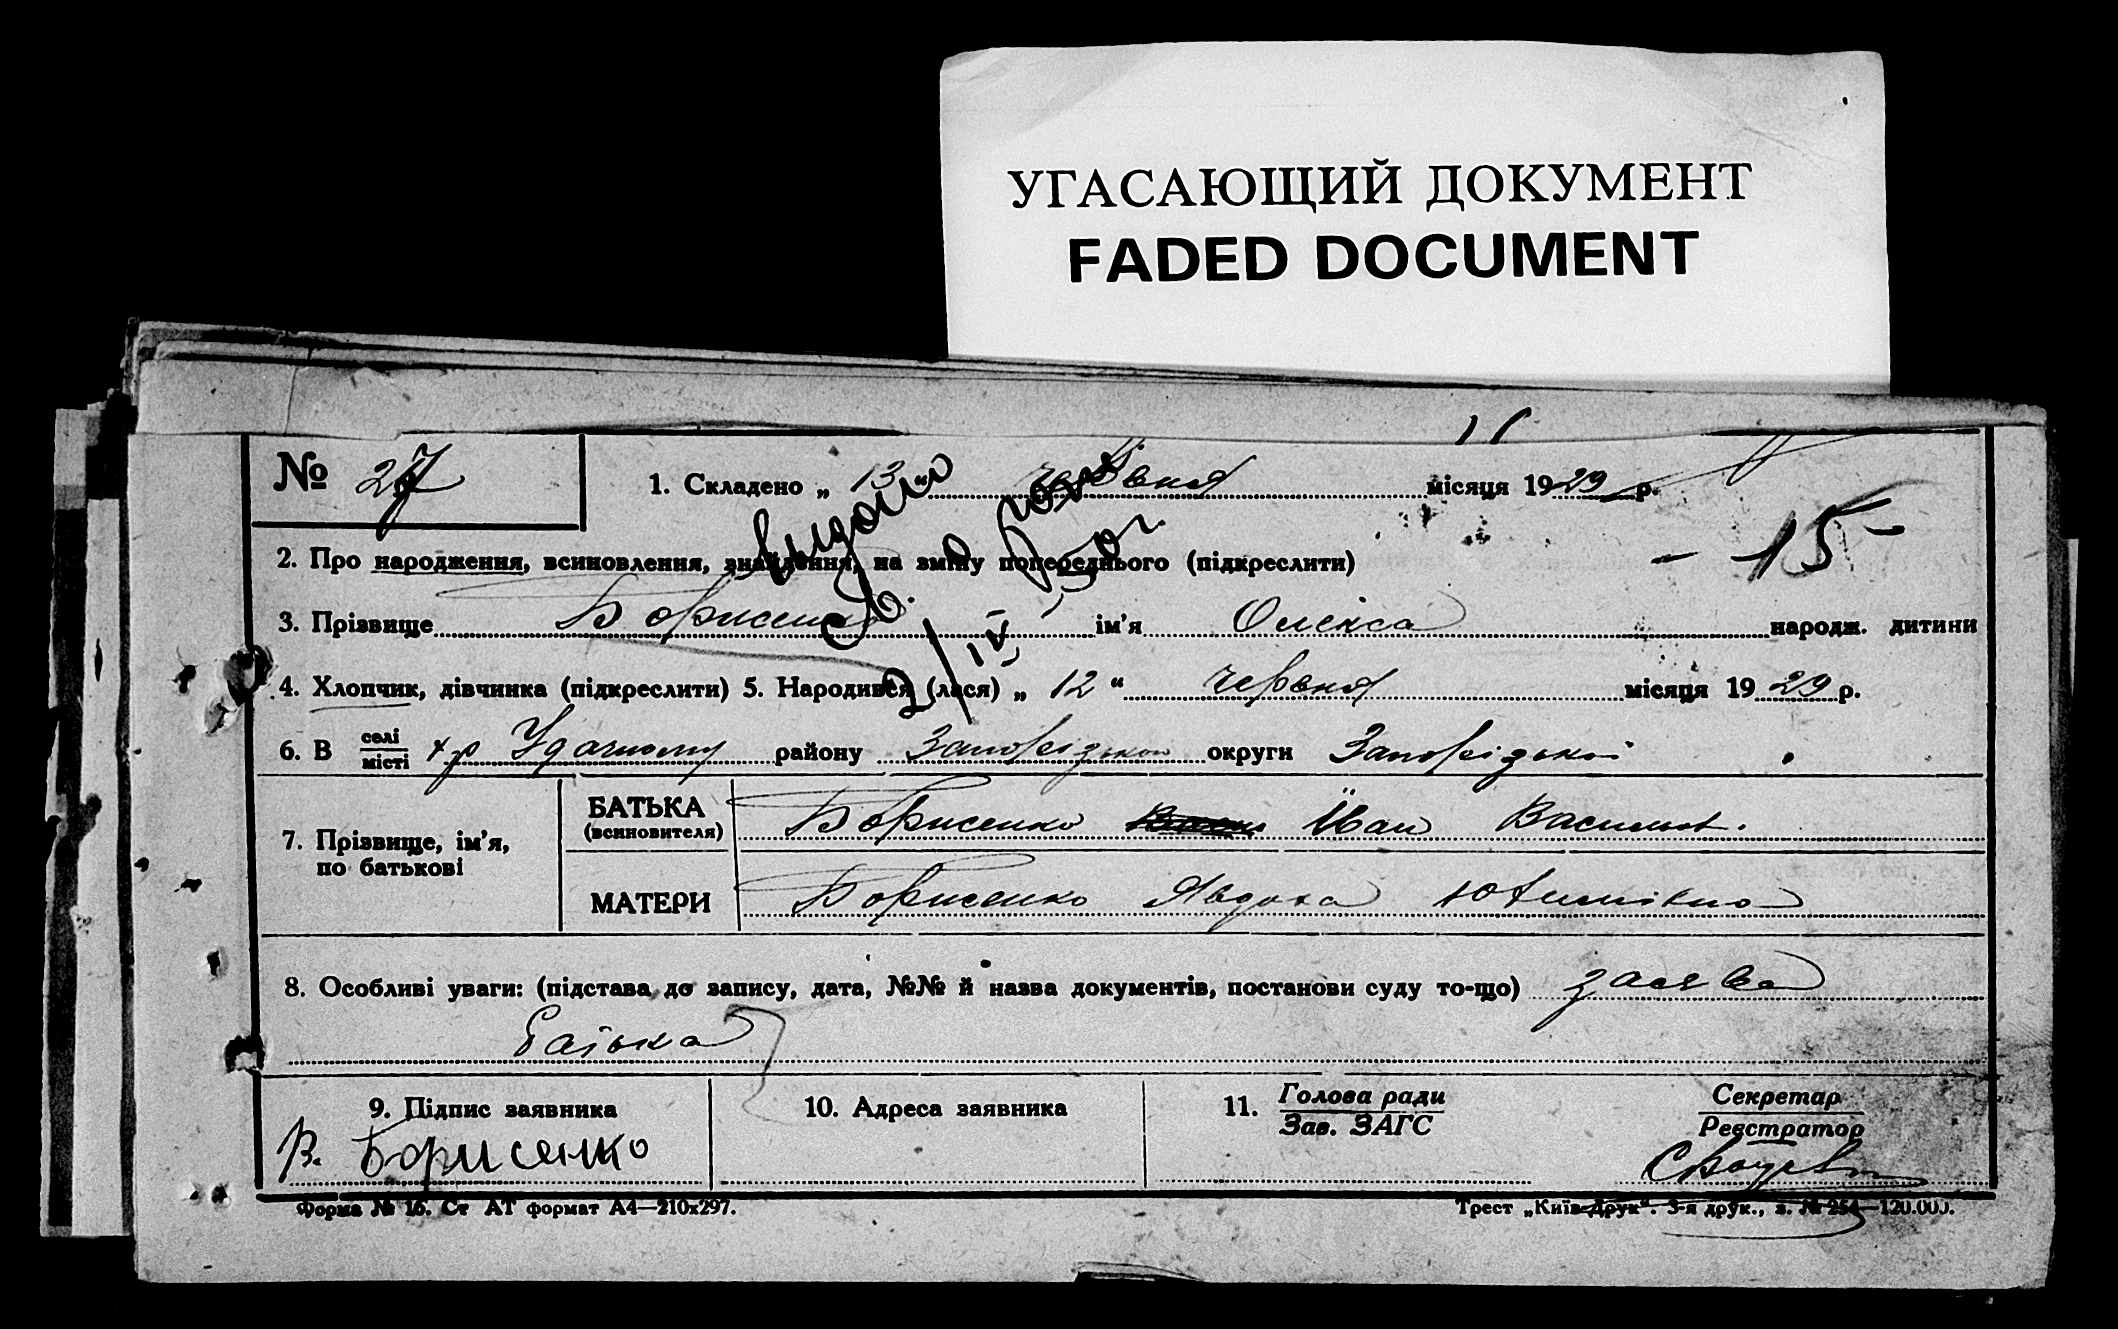 УГАСАЮЩИЙ ДОКУМЕНТ
FADED DOCUMENT
№ 27
1. Складено „ 13 “ червня місяця 1929 р.
- 15 -
2. Про народження, всиновлення, знайдення, на зміну попереднього (підкреслити)
3. Прізвище Борисенко ім'я Олекса народж. дитини
4. Хлопчик, дівчинка (підкреслити) 5. Народився (лася) „ 12 “ червня місяця 1929 р.
6. В селі
місті х-р Удачному району Запорізького округи Запорізької
7. Прізвище, ім'я,
по батькові
БАТЬКА
(всиновителя)
Борисенко Іван Васильов.
МАТЕРИ
Борисенко Явдоха Юхимівна
8. Особливі уваги: (підстава до запису, дата, №№ й назва документів, постанови суду то-що) заява
батька
9. Підпис заявника
В. Борисенко
10. Адреса заявника
11. Голова ради
Зав. ЗАГС
Секретар
Реєстратор
Форма № 16. Ст АТ формат А4—210х297.
Трест „Київ-Друк“. 3-я друк., з. № 254—120.000.
выдано